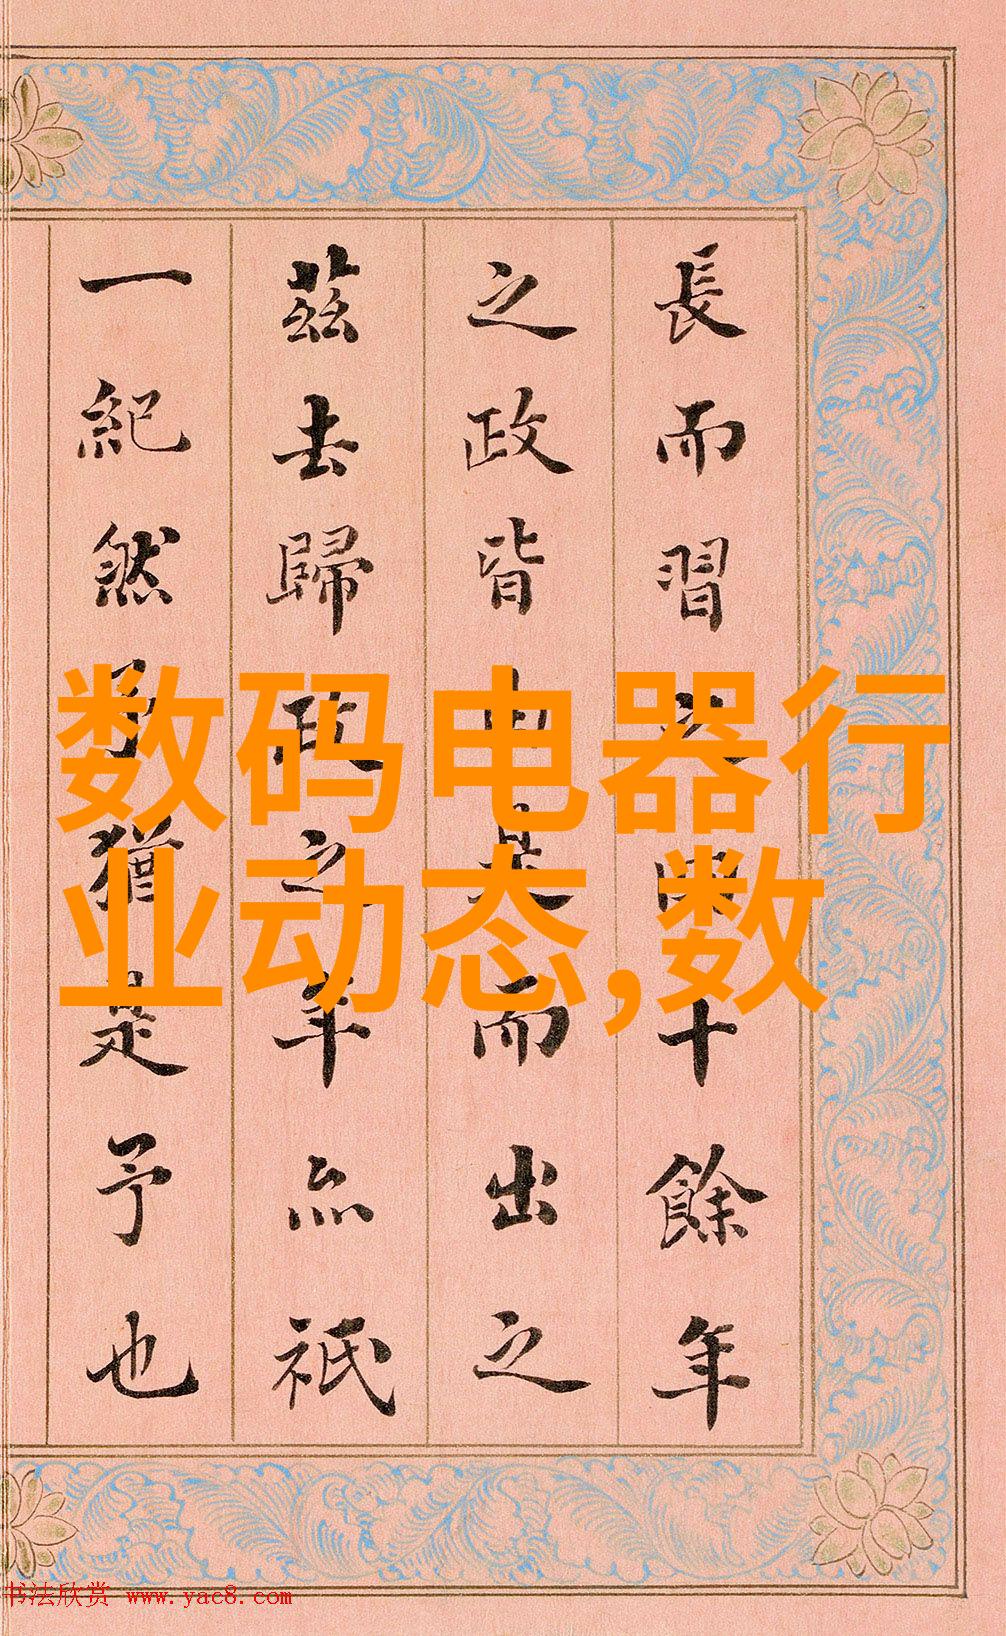 数码电器行
业动态,数
長而習十餘年
之政皆而出之
茲去歸政之年亦祇
一紀然予猶是予也
书法欣赏 www.yac8.com